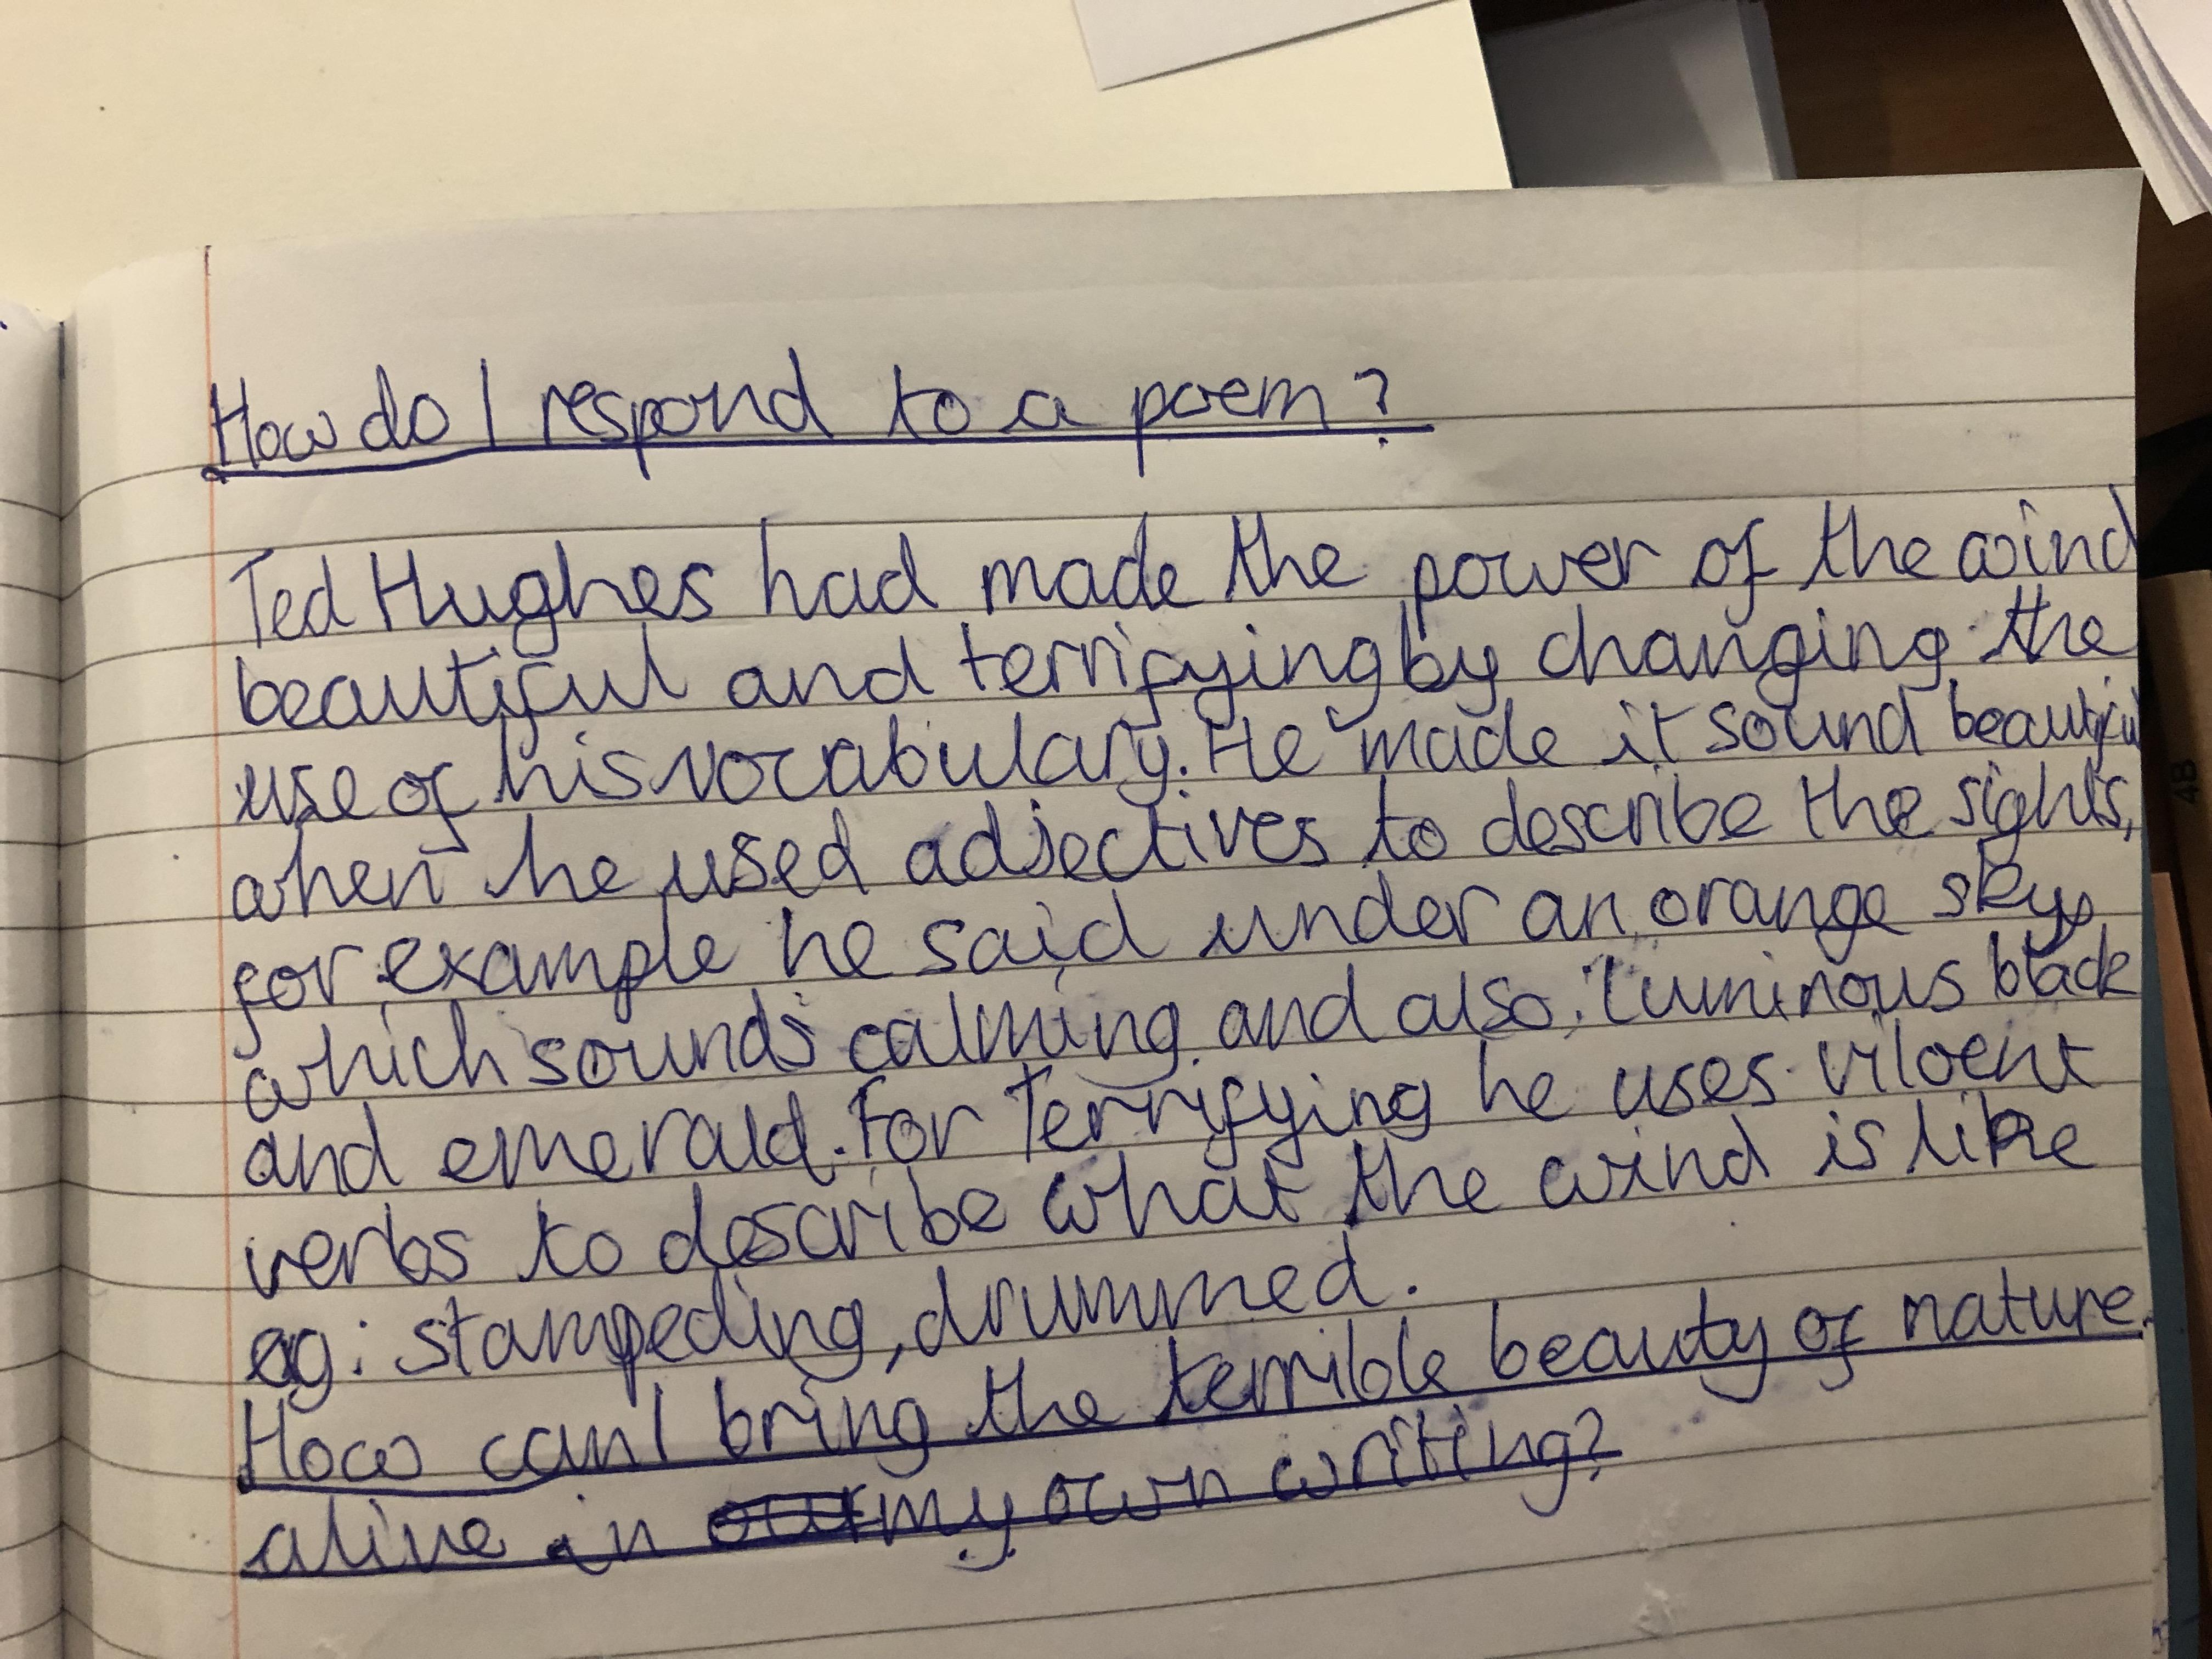 How do I respond to a poem?
Ted Hughes had made the power of the wind
beautiful and terrifying by changing the
use of his vocabulary. He made it sound beautiful
when he used adjectives to describe the sights,
for example he said under an orange sky
which sounds calming and also, luminous black
and emerald. For Terrifying he uses viloent
verbs to describe what the wind is like
eg: stampeding, drummed.
How can I bring the terrible beauty of nature
alive in our my own writing?
4B